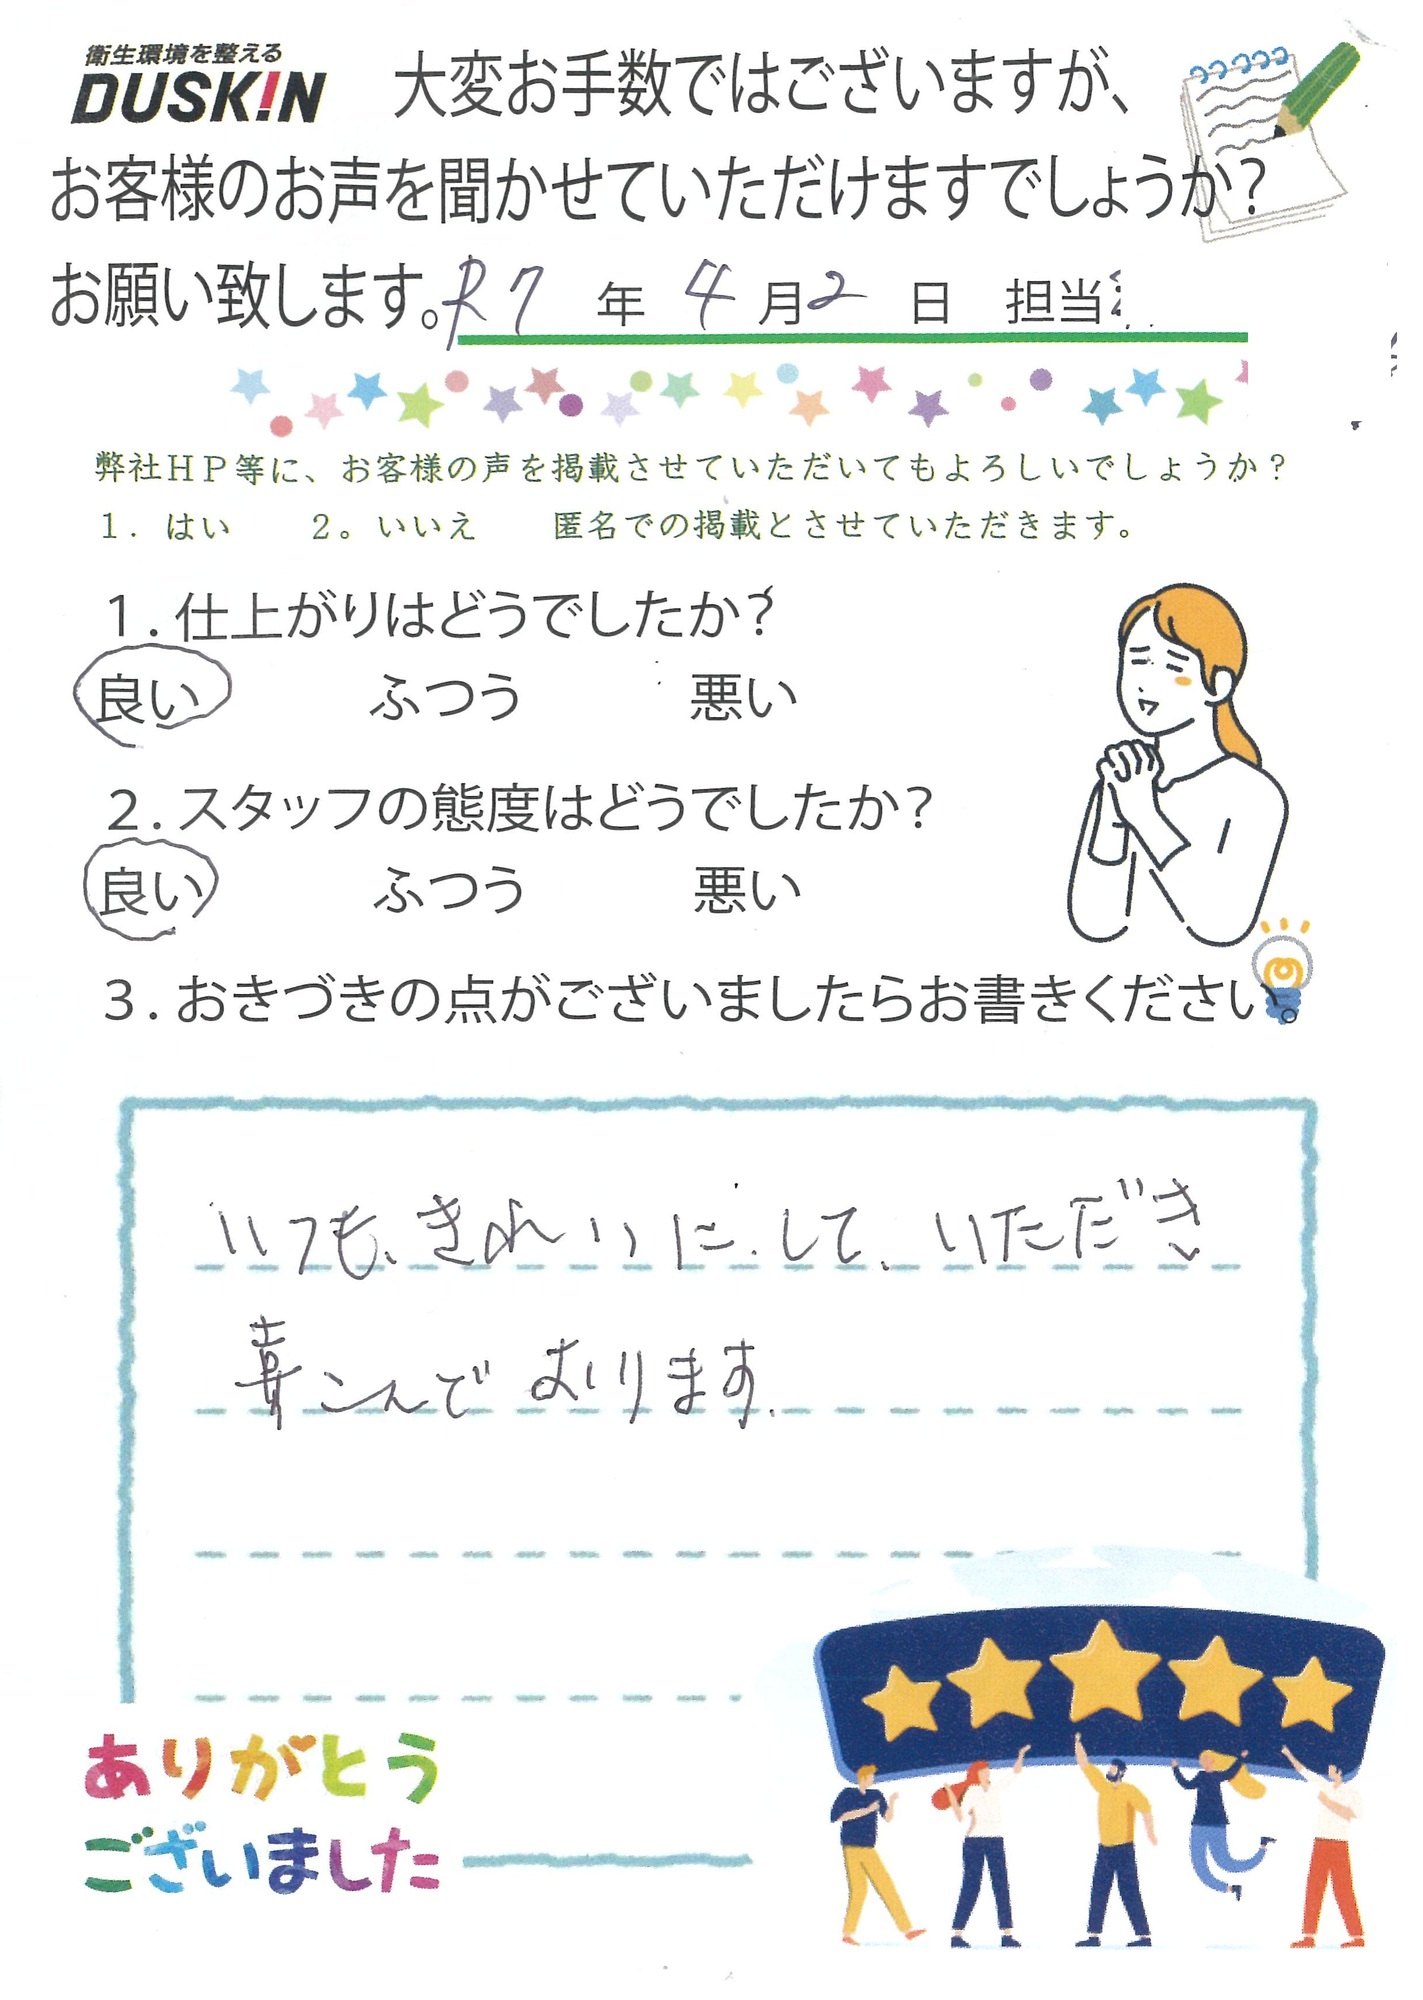 衛生環境を整える
DUSKIN
大変お手数ではございますが、
お客様のお声を聞かせていただけますでしょうか?
お願い致します。R7 年 4 月 2 日 担当
弊社HP等に、お客様の声を掲載させていただいてもよろしいでしょうか?
1. はい 2。いいえ 匿名での掲載とさせていただきます。
1. 仕上がりはどうでしたか?
良い ふつう 悪い
2. スタッフの態度はどうでしたか?
良い ふつう 悪い
3. おきづきの点がございましたらお書きください。
いつも、きれいに、して、いただき
喜こんでおります。
ありがとう
ございました